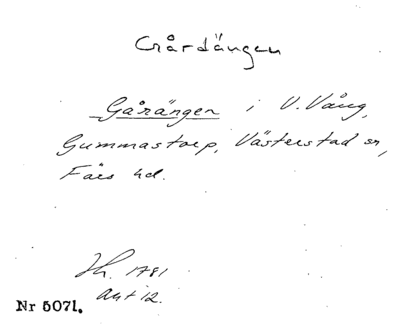 Gårdängen
Gårängen i V. Vång,
Gummastorp, Västerstad sn,
Färs hd.
Lh. 1781
akt 12.
Nr 5071.